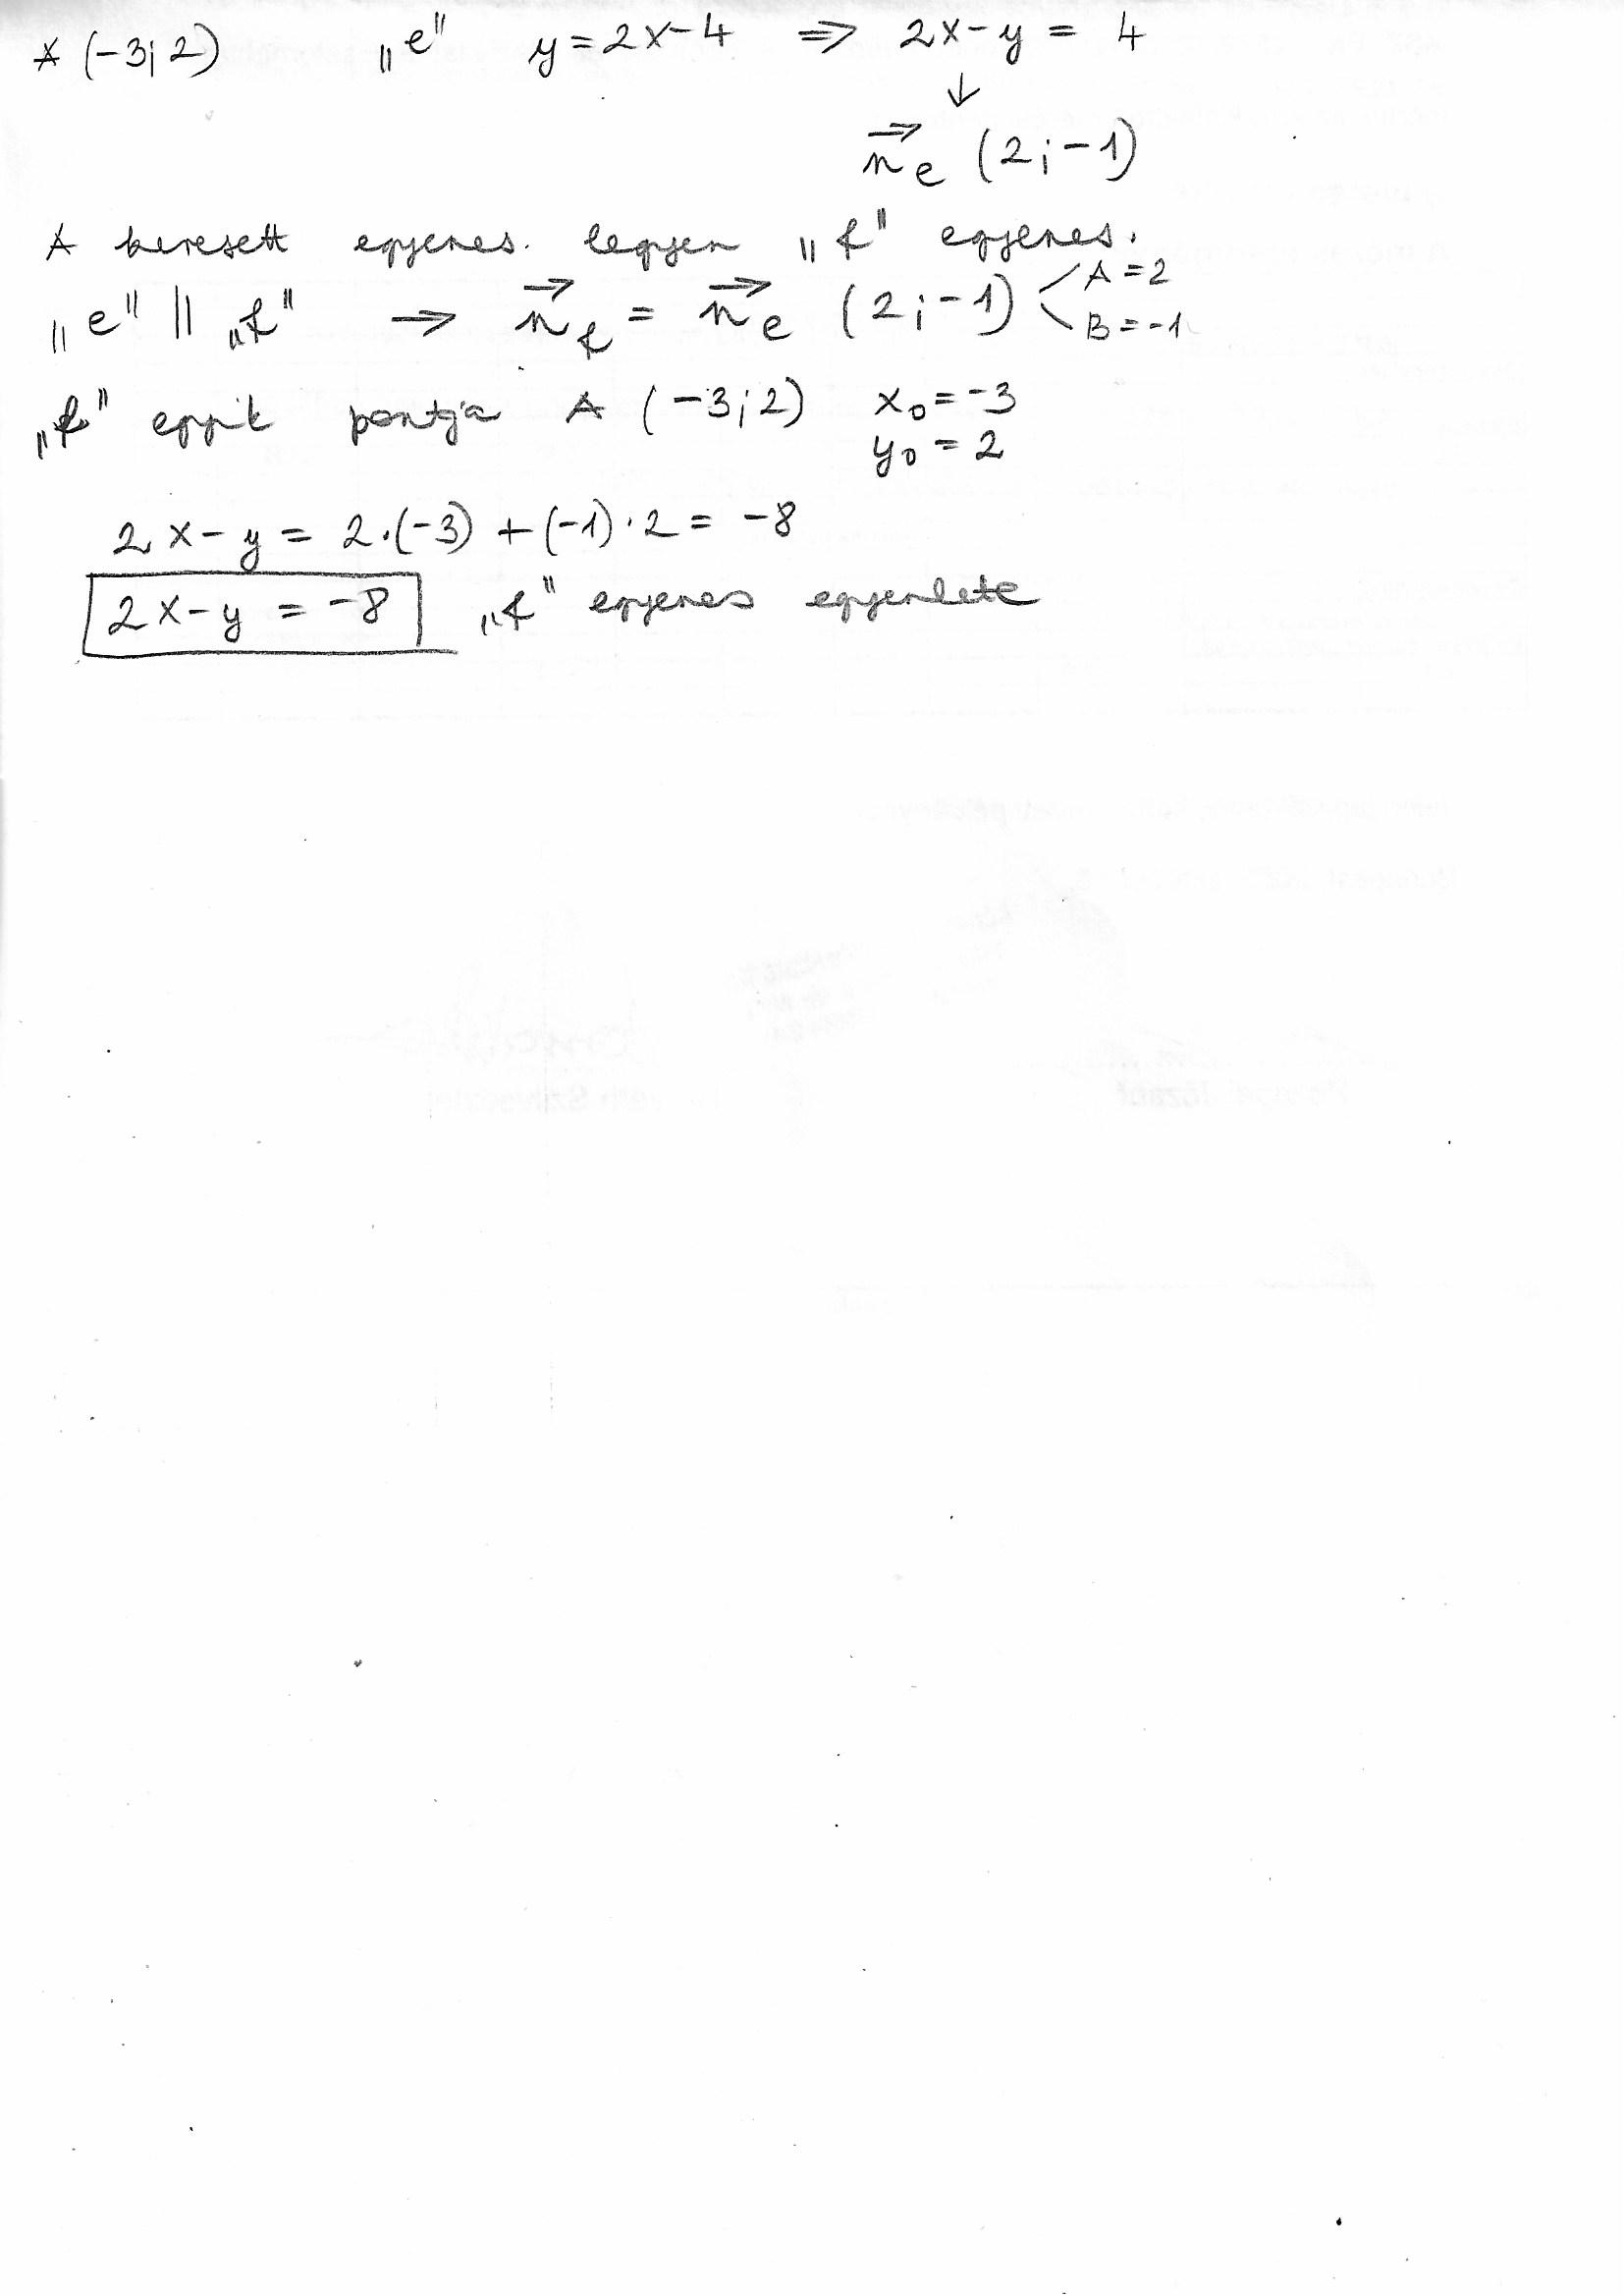 A (-3; 2) „e" y = 2x-4 ⇒ 2x-y = 4
↓
n⃗e (2; -1)
A keresett egyenes legyen „f" egyenes.
„e" || „f" → n⃗f = n⃗e (2; -1) A = 2 B = -1
„f" egyik pontja A (-3; 2) x₀ = -3
y₀ = 2
2x-y = 2·(-3) + (-1)·2 = -8
2x-y = -8 „f" egyenes egyenlete